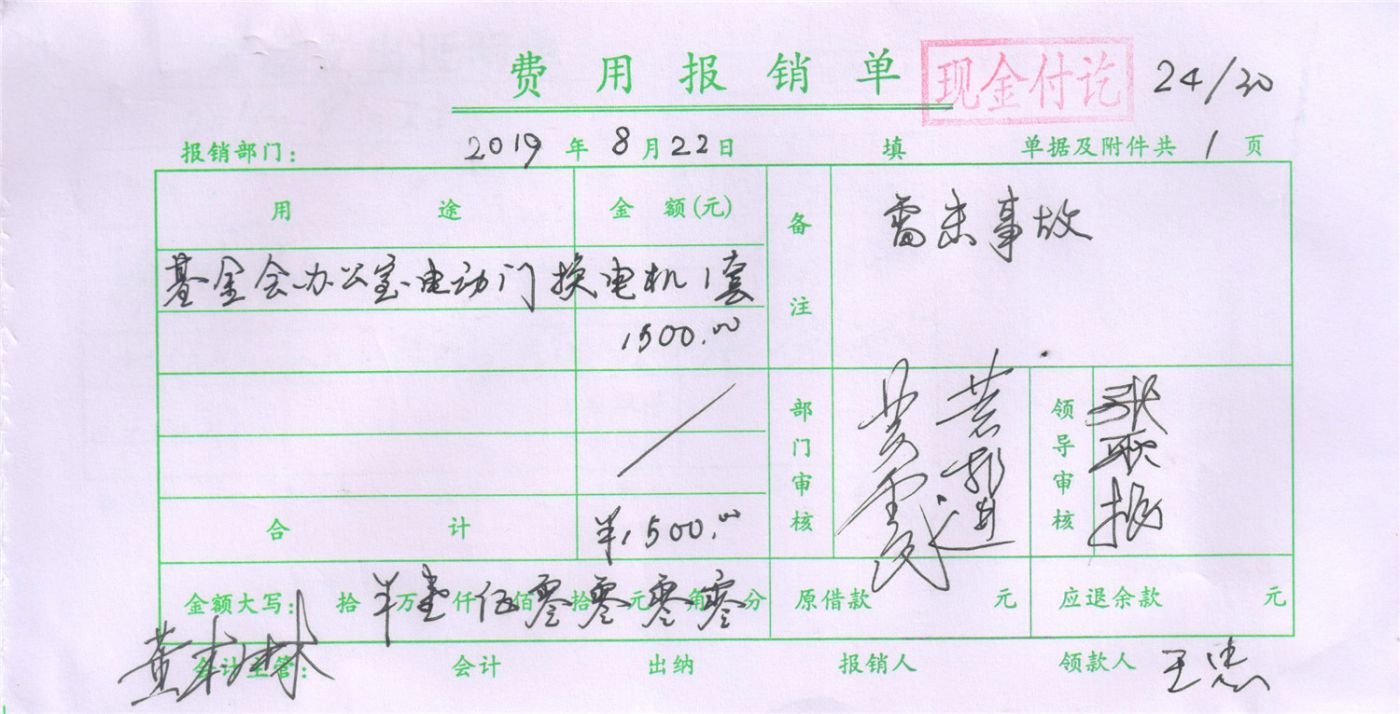 费用报销单 现金付讫 24/30
报销部门: 2019年8月22日 填 单据及附件共 1 页
用途 金额(元) 备注 雷击事故
基金会办公室电动门换电机1套
1500.00
部门审核 领导审核
合计 ¥1500.00
金额大写: 拾 ¥万壹仟伍佰零拾零元零角零分 原借款 元 应退余款 元
会计主管: 会计 出纳 报销人 领款人 王忠